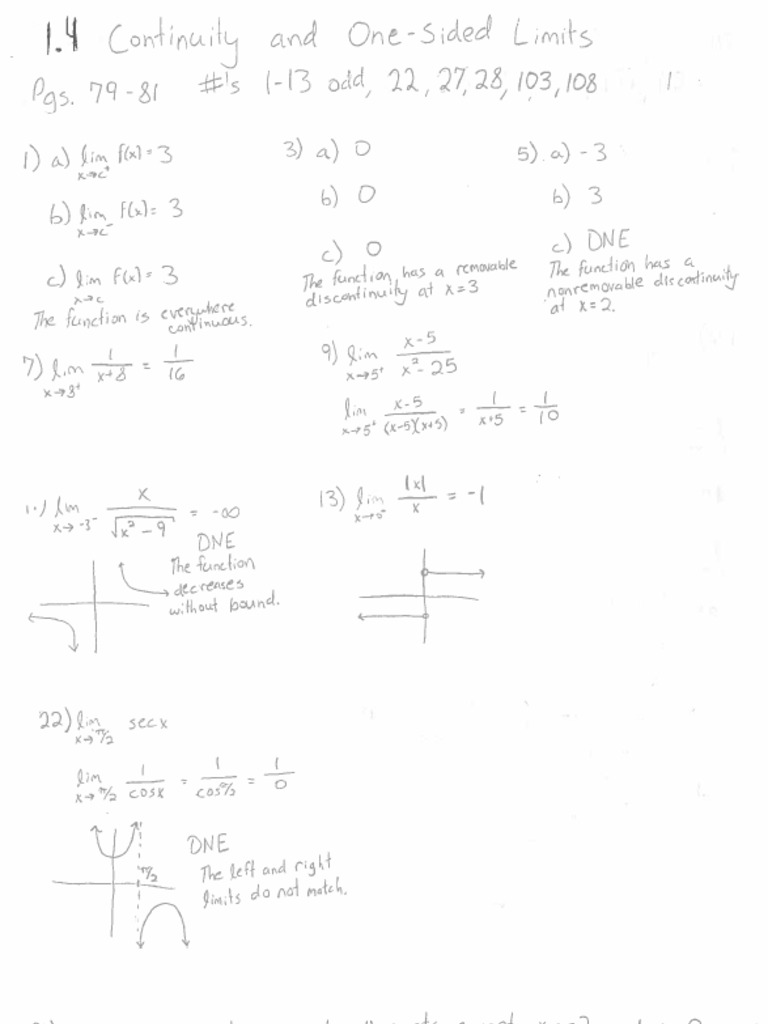 1.4 Continuity and One-Sided Limits
Pgs. 79-81 #'s 1-13 odd, 22, 27, 28, 103, 108
1) a) lim x→c⁺ f(x) = 3
b) lim x→c⁻ f(x) = 3
c) lim x→c f(x) = 3
The function is everywhere
continuous.
3) a) 0
b) 0
c) 0
The function has a removable
discontinuity at x=3
5) a) -3
b) 3
c) DNE
The function has a
nonremovable discontinuity
at x=2.
7) lim x→8⁺ 1/(x+8) = 1/16
9) lim x→5⁺ (x-5)/(x²-25)
lim x→5⁺ (x-5)/((x-5)(x+5)) = 1/(x+5) = 1/10
11) lim x→-3⁻ x/√(x²-9) = -∞
DNE
The function
decreases
without bound.
13) lim x→0⁻ |x|/x = -1
22) lim x→π/2 sec x
lim x→π/2 1/cosx = 1/cos π/2 = 1/0
π/2
DNE
The left and right
limits do not match.